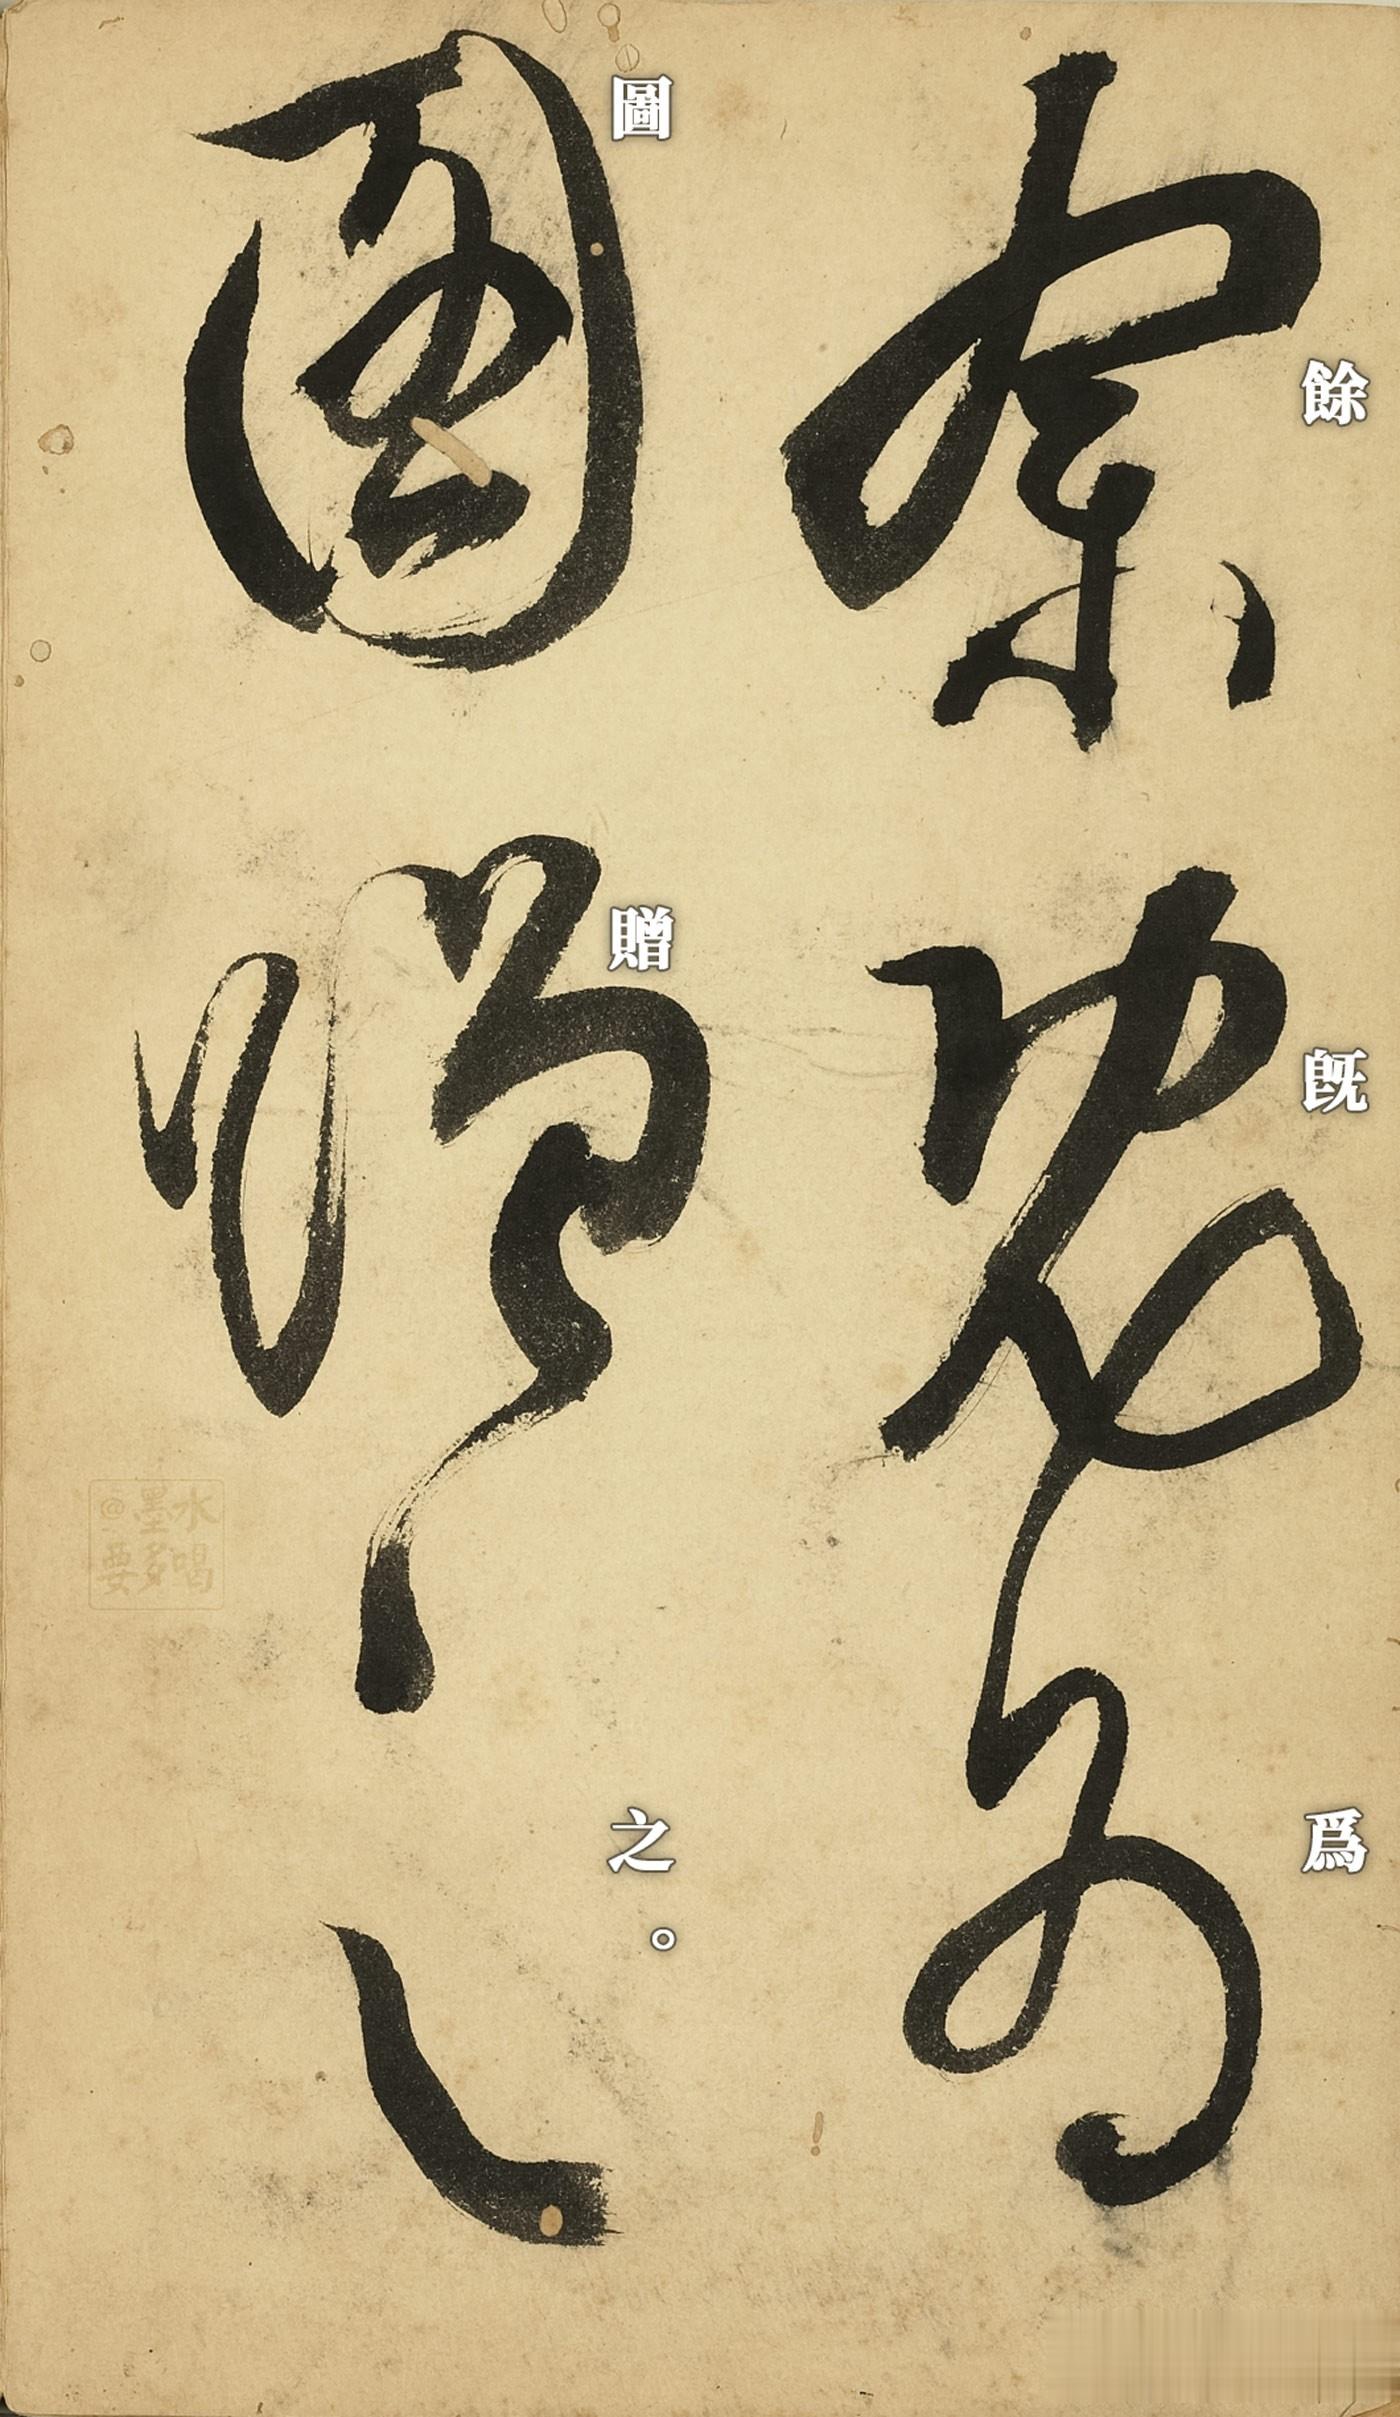 餘既爲
圖贈之。
@墨水
要多喝